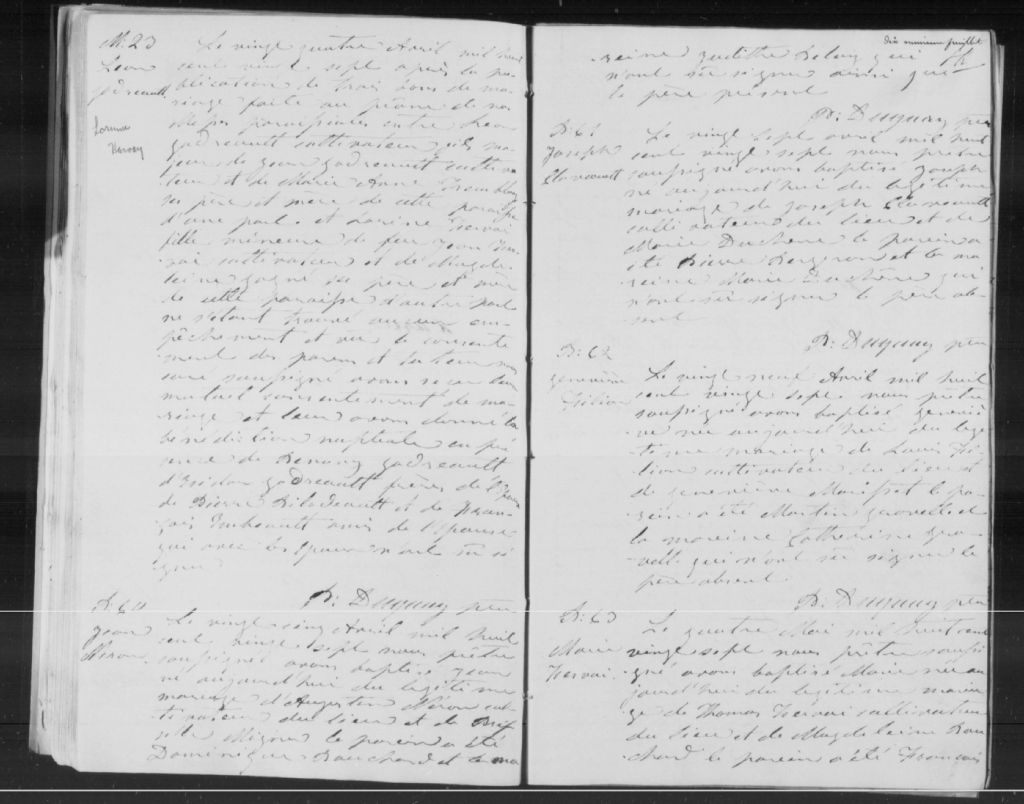 M. 23
Leon
Godreault
Lorenne
Hervey
Le vingt quatre Avril mil huit
cent vingt sept après la pu
blication de trois bans de ma
riage faite au prône de nos
Messes paroissiales entre Leon
Godreault cultivateur fils ma
jeur de Jean Godreault cultiva
teur et de Marie Anne Tremblay
ses père et mère de cette paroisse
d'une part et Hervai
fille mineure de feu Jean Her
vai cultivateur et de Magde
leine Gagné ses père et mère
de cette paroisse d'autre part
ne s'étant trouvé aucun em
pêchement et vu le consente
ment des parens et tuteur nous
curé soussigné avons reçu leur
mutuel consentement de ma
riage et leur avons donné la
bénédiction nuptiale en pré
sence de Benony Godreault
d'Isidor Godreault frères de l'époux
de Pierre Bilodeault et de Fran
çois Imbeault amis de l'épouse
qui avec les époux n'ont su si
gner
P: Duguay ptre
B. 60
Jean
Miron
Le vingt cinq Avril mil huit
cent vingt sept nous prêtre
soussigné avons baptisé Jean
né aujourd'hui du légitime
mariage d'Augustin Miron cul
tivateur du lieu et de
Mignier le parein a été
Dominique Bouchard et la ma
dix neuvieme feuillet
reine qui
n'ont su signer ainsi que
le père présent
P: Duguay ptre
B. 61
Joseph
Le vingt sept avril mil huit
cent vingt sept nous prêtre
soussigné avons baptisé Joseph
né aujourd'hui du légitime
mariage de Joseph
cultivateur du lieu et de
Marie Duchêne le parein a
été Pierre Bergeron et la ma
reine Marie Duchêne qui
n'ont su signer le père ab
sent
P: Duguay ptre
B. 62
Genevieve
Filion
Le vingt neuf Avril mil huit
cent vingt sept nous prêtre
soussigné avons baptisé Geneviè
ve née aujourd'hui du légi
time mariage de Louis Fi
lion cultivateur du lieu et
de Geneviève le pa
rein a été Martin et
la mareine Catherine
qui n'ont su signer le
père absent
P: Duguay ptre
B. 63
Marie
Hervai
Le quatre Mai mil huit cent
vingt sept nous prêtre soussi
gné avons baptisé Marie née au
jourd'hui du légitime maria
ge de Thomas Hervai cultivateur
du lieu et de Magdeleine Bou
chard le parein a été François